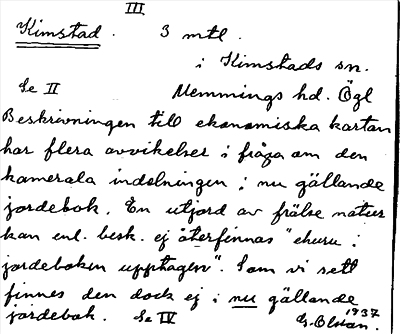 III
Kimstad. 3 mtl.
i Kimstads sn.
Se II Memmings hd. Ögl
Beskrivningen till ekonomiska kartan
har flera avvikelser i fråga om den
kamerala indelningen i nu gällande
jordebok. En utjord av frälse natur
kan enl. besk. ej återfinnas "ehuru i
jordeboken upptagen". Som vi sett
finnes den dock ej i nu gällande
jordebok. Se IV G. Olson. 1937